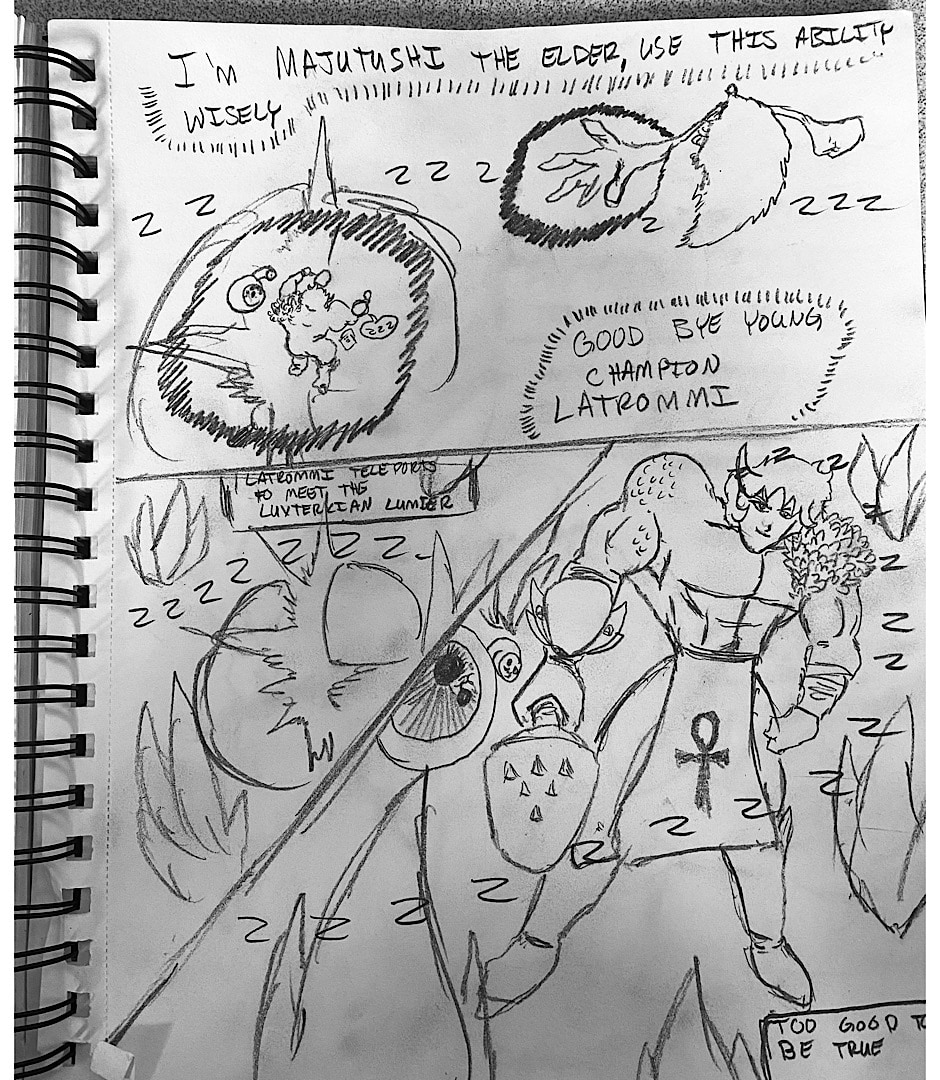 I'M MAJUTUSHI THE ELDER, USE THIS ABILITY
WISELY
Z Z Z Z Z
Z Z Z Z
ZZZ
GOOD BYE YOUNG
CHAMPION
LATROMMI
LATROMMI TELEPORTS
TO MEET THE
LUXTERKIAN LUMIER
Z Z Z Z Z Z Z
Z Z
Z
Z
Z
Z
Z
Z Z Z
Z Z Z Z
TOO GOOD T
BE TRUE